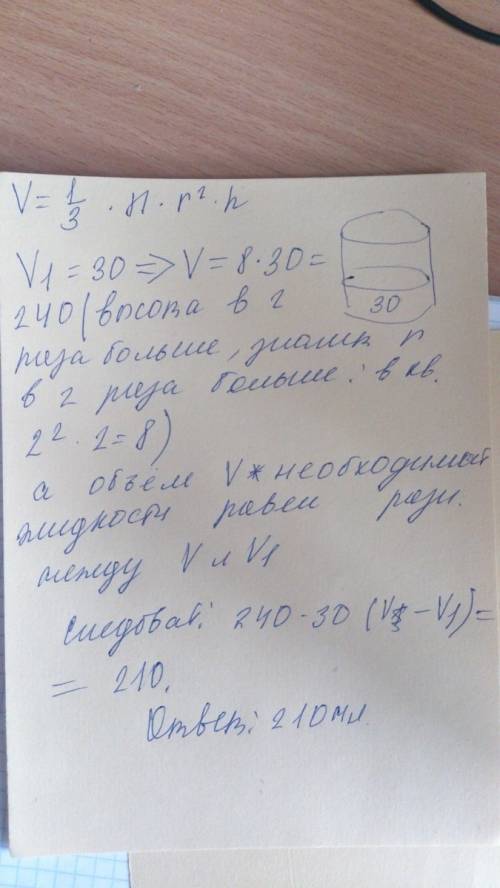 V = 1/3 · π · r² · h
V1 = 30 => V = 8 · 30 =
240 (высота в 2
раза больше, значит r
в 2 раза больше: в кв.
2² · 2 = 8)
а объём V* необходимый
жидкости равен разн.
между V и V1
следоват: 240 - 30 (V - V1) =
= 210.
Ответ: 210 мл.
30